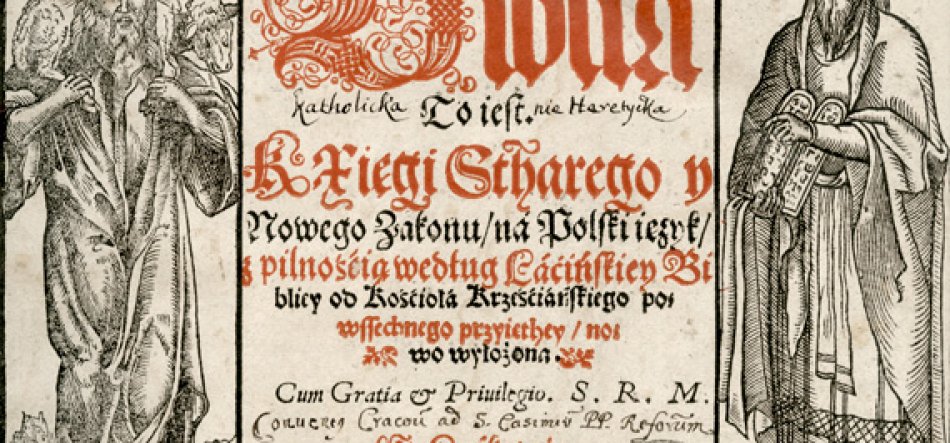 katholicka To iest. nie Heretycka
KXiegi Stharego y
Nowego Zakonu/ná Polski ięzyk/
z pilnośćią według Láćińskiey Bi
bliey od Kośćiołá Krześćiáńskiego po⸗
wssechnego przyiethey / no⸗
wo wyłożona.
Cum Gratia & Privilegio. S. R. M.
ad S. Casimirū PP. Reform